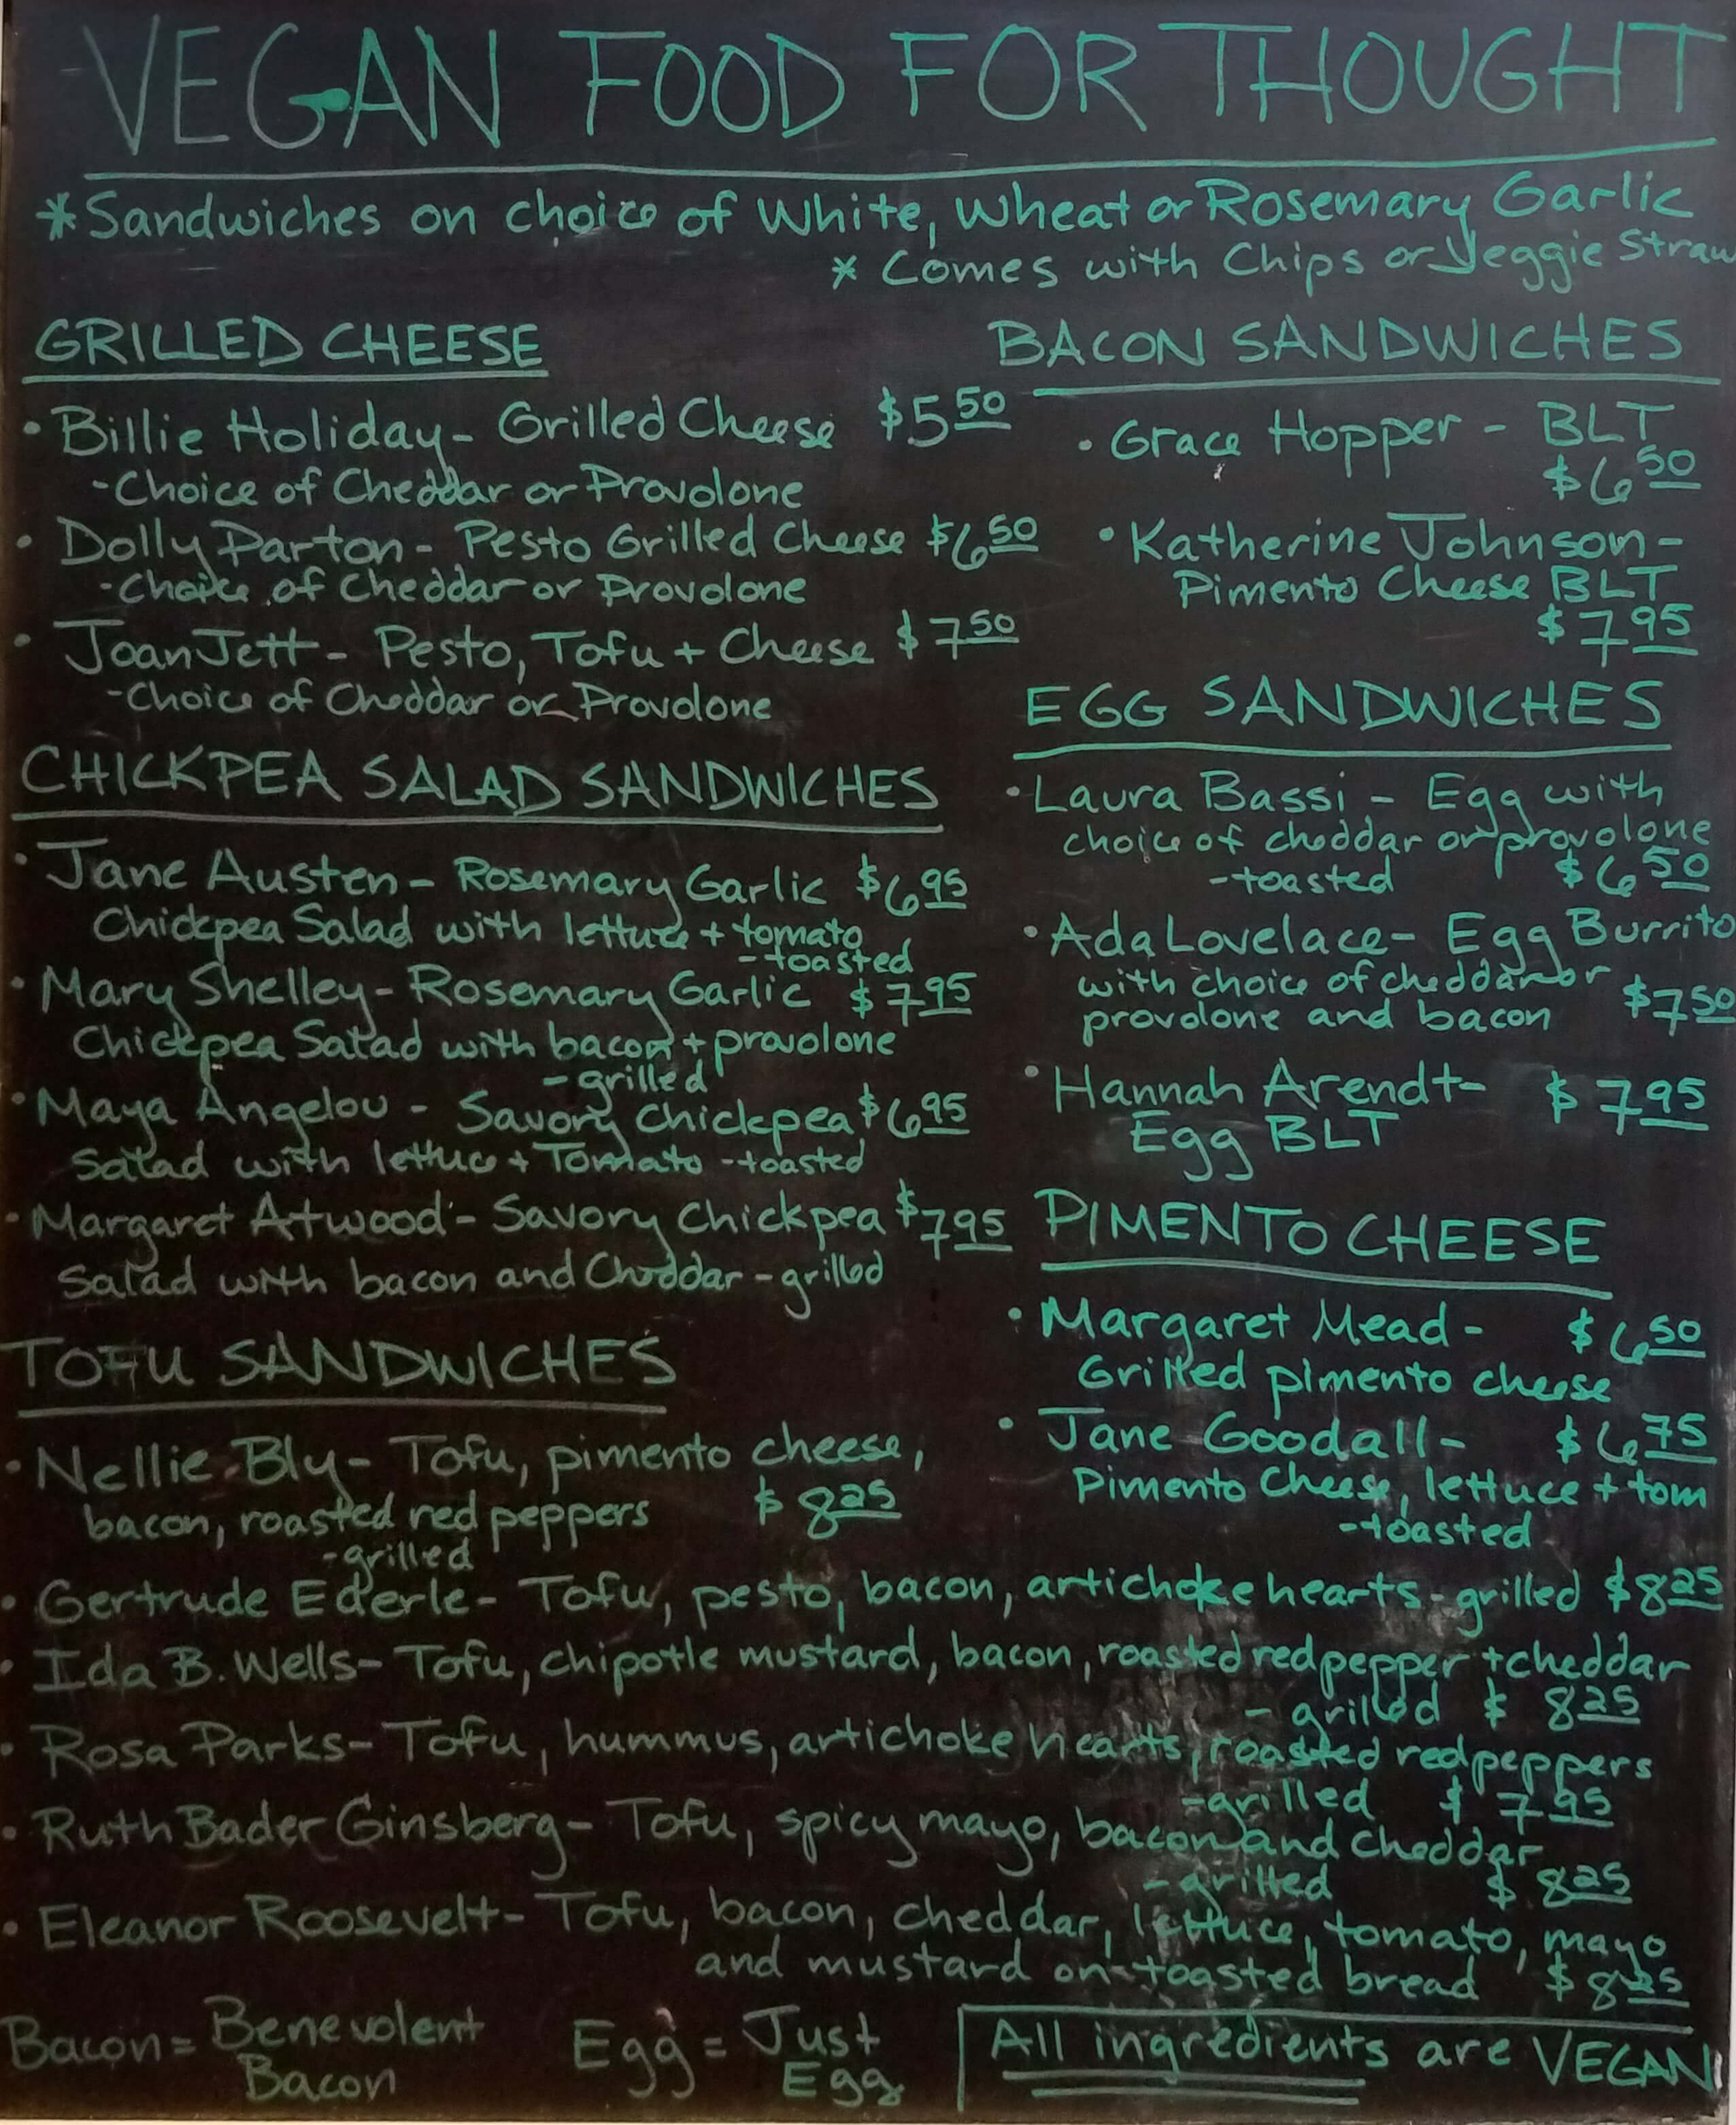 VEGAN FOOD FOR THOUGHT
*Sandwiches on choice of White, Wheat or Rosemary Garlic
* Comes with Chips or Veggie Straw
GRILLED CHEESE
• Billie Holiday - Grilled Cheese $5.50
- Choice of Cheddar or Provolone
• Dolly Parton - Pesto Grilled Cheese $6.50
- Choice of Cheddar or Provolone
• Joan Jett - Pesto, Tofu + Cheese $7.50
- Choice of Cheddar or Provolone
CHICKPEA SALAD SANDWICHES
• Jane Austen - Rosemary Garlic $6.95
Chickpea Salad with lettuce + tomato
- toasted
• Mary Shelley - Rosemary Garlic $7.95
Chickpea Salad with bacon + provolone
- grilled
• Maya Angelou - Savory Chickpea $6.95
Salad with lettuce + Tomato - toasted
• Margaret Atwood - Savory Chickpea $7.95
Salad with bacon and Cheddar - grilled
BACON SANDWICHES
• Grace Hopper - BLT
$6.50
• Katherine Johnson -
Pimento Cheese BLT
$7.95
EGG SANDWICHES
• Laura Bassi - Egg with
choice of cheddar or provolone
- toasted $6.50
• Ada Lovelace - Egg Burrito
with choice of cheddar or
provolone and bacon $7.50
• Hannah Arendt - $7.95
Egg BLT
PIMENTO CHEESE
• Margaret Mead - $6.50
Grilled pimento cheese
• Jane Goodall - $6.75
Pimento Cheese, lettuce + tom
- toasted
TOFU SANDWICHES
• Nellie Bly - Tofu, pimento cheese,
bacon, roasted red peppers $8.25
- grilled
• Gertrude Ederle - Tofu, pesto, bacon, artichoke hearts - grilled $8.25
• Ida B. Wells - Tofu, chipotle mustard, bacon, roasted red pepper + cheddar
- grilled $8.25
• Rosa Parks - Tofu, hummus, artichoke hearts, roasted red peppers
- grilled $7.95
• Ruth Bader Ginsberg - Tofu, spicy mayo, bacon and cheddar
- grilled $8.25
• Eleanor Roosevelt - Tofu, bacon, cheddar, lettuce, tomato, mayo
and mustard on toasted bread $8.25
Bacon = Benevolent
Bacon
Egg = Just
Egg
All ingredients are VEGAN